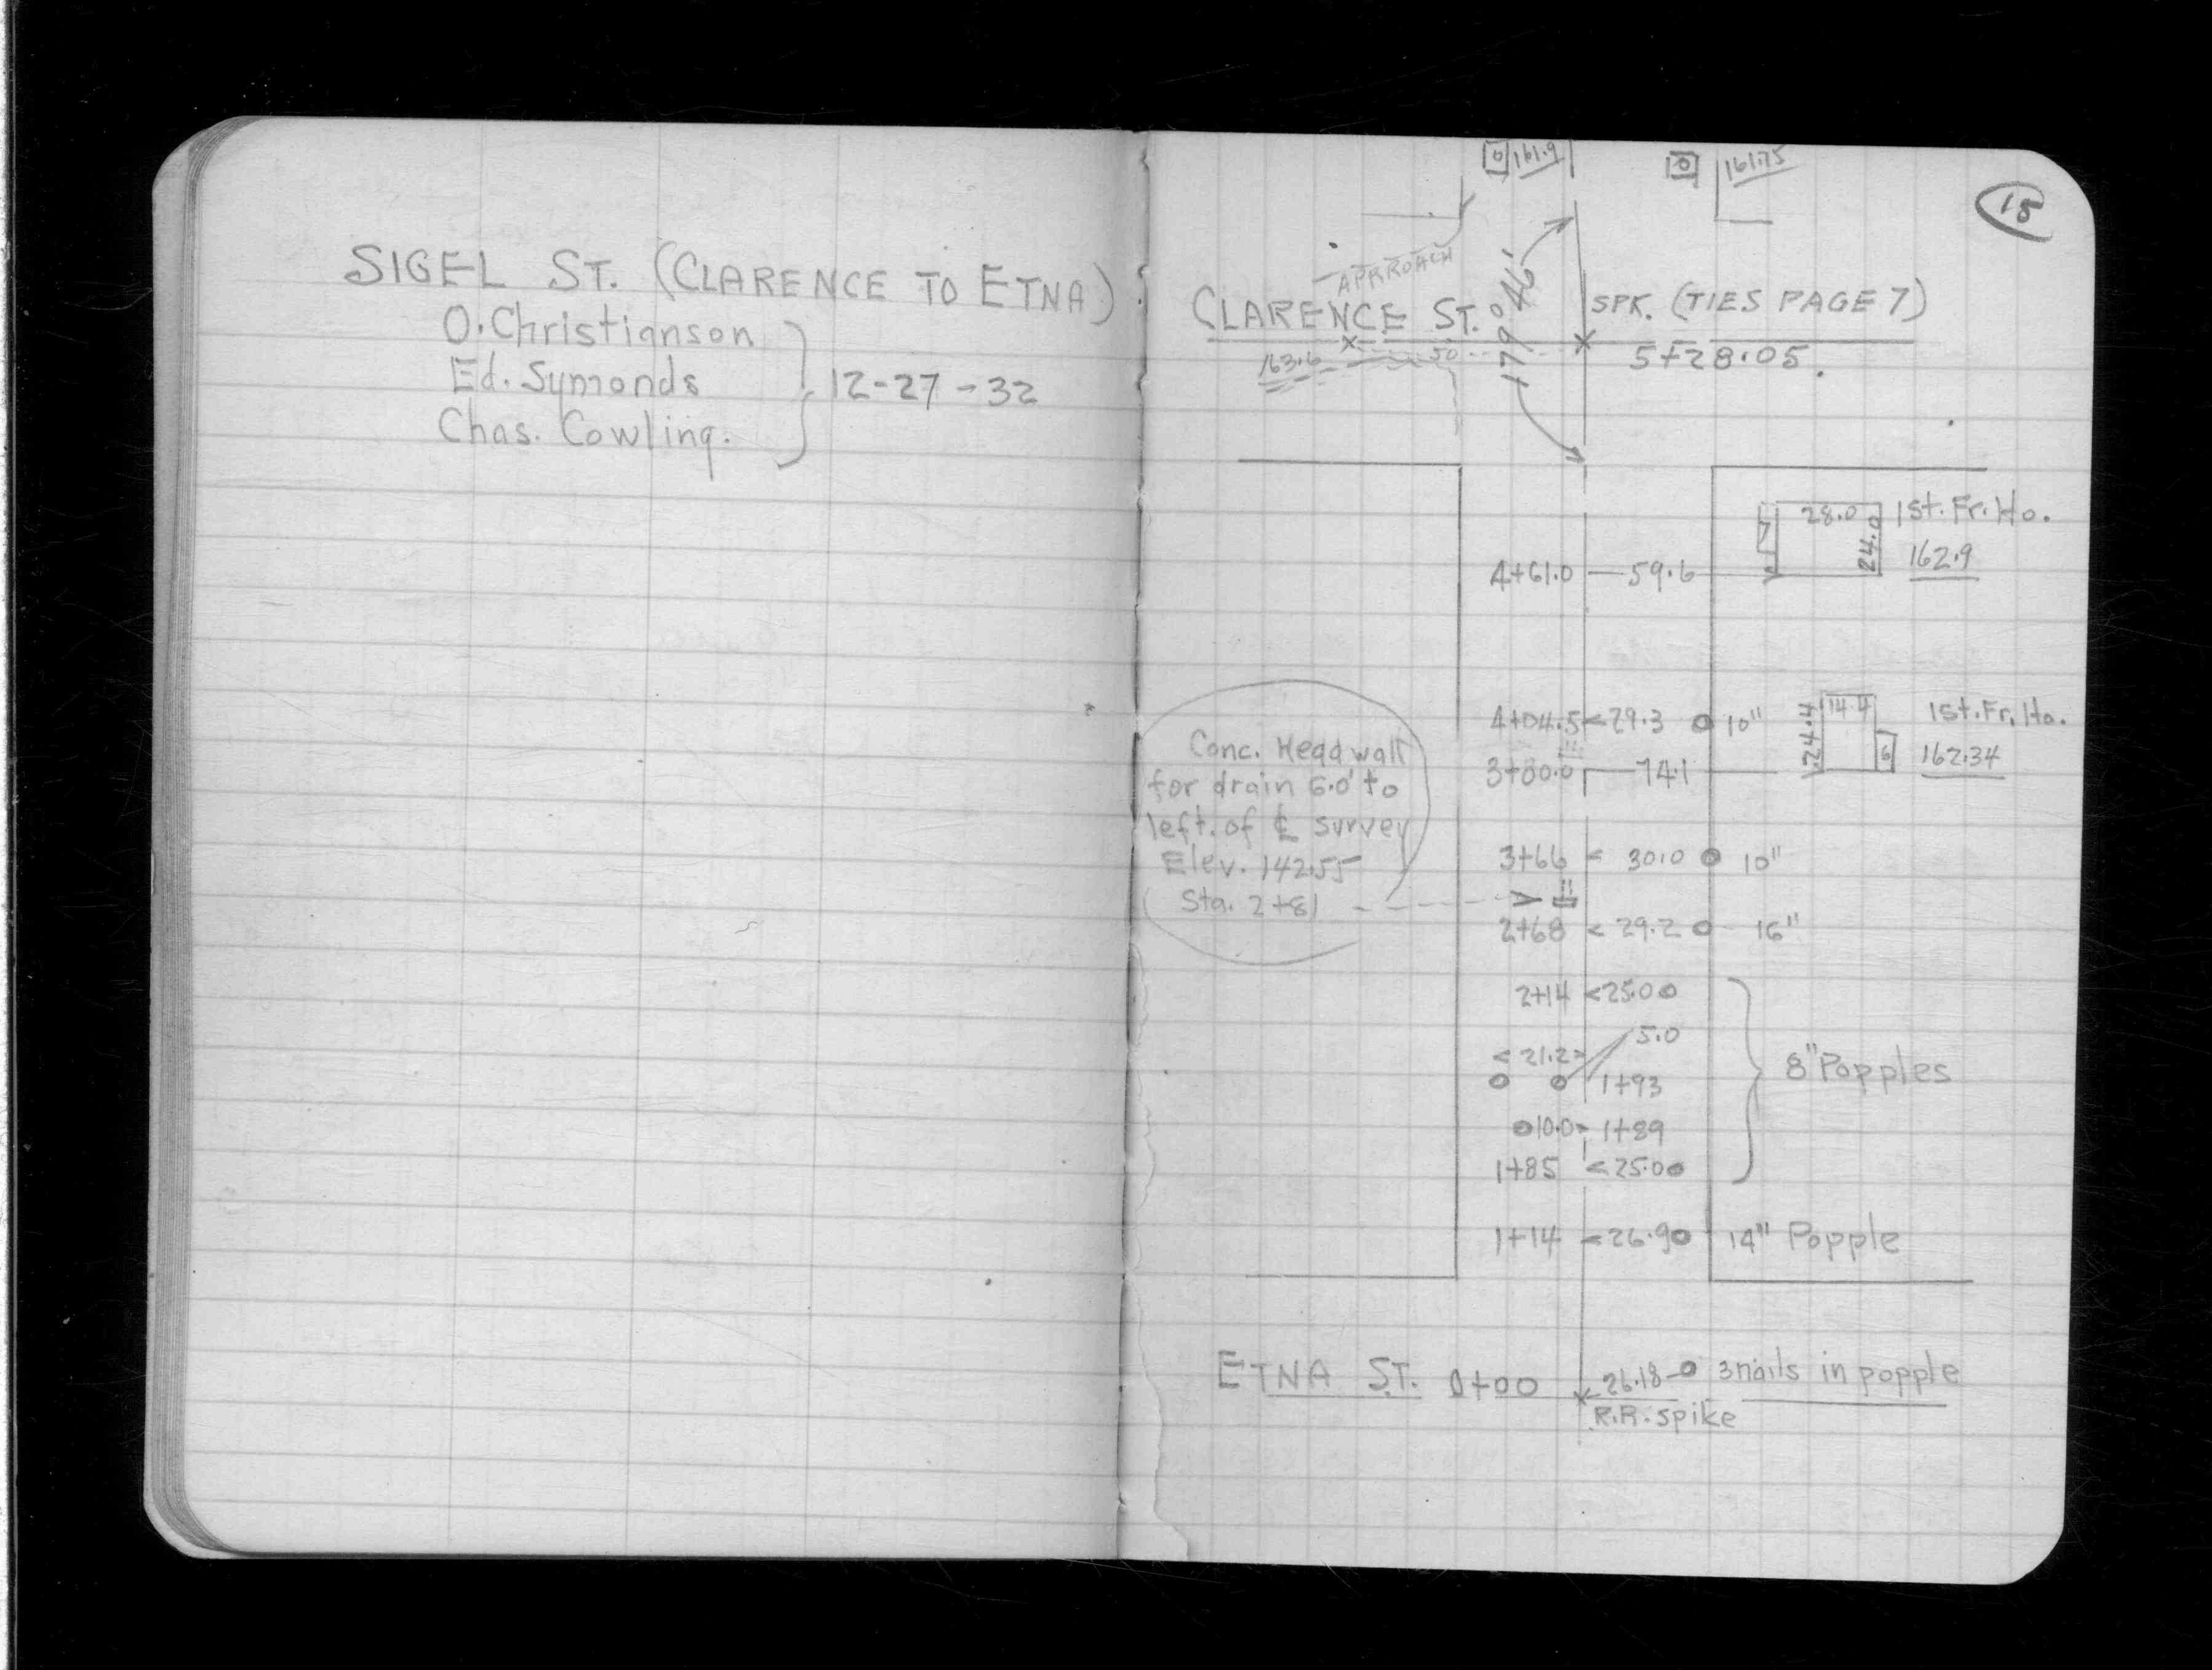 SIGEL ST. (CLARENCE TO ETNA)
O. Christianson
Ed. Symonds
Chas. Cowling.
12-27-32
161.9
161.75
18
APRROACH
CLARENCE ST.
179°46'
SPK. (TIES PAGE 7)
163.6
50
5+28.05.
28.0
24.0
7
1st. Fr. Ho.
162.9
4+61.0 59.6
4+04.5 < 29.3 10"
24.4
14.4
6
1st. Fr. Ho.
162.34
74.1
Conc. Headwall
for drain 6.0' to
left. of ℄ survey
Elev. 142.55
Sta. 2+81
3+66 < 30.0 10"
2+68 < 29.2 16"
2+14 < 25.0
5.0
< 21.2 >
1+93
8" Popples
10.0 > 1+89
1+85 < 25.0
1+14 < 26.9 14" Popple
ETNA ST. 0+00
26.18 3 nails in popple
R.R. spike